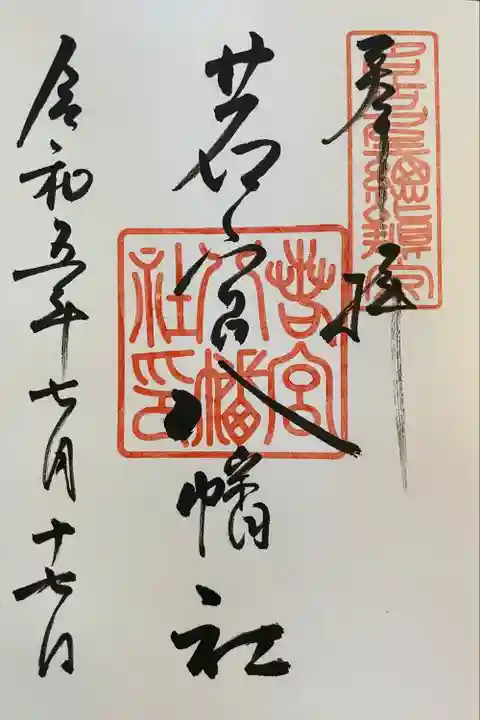 奉拝
若宮八幡社
若宮八幡社印
令和五年七月十七日